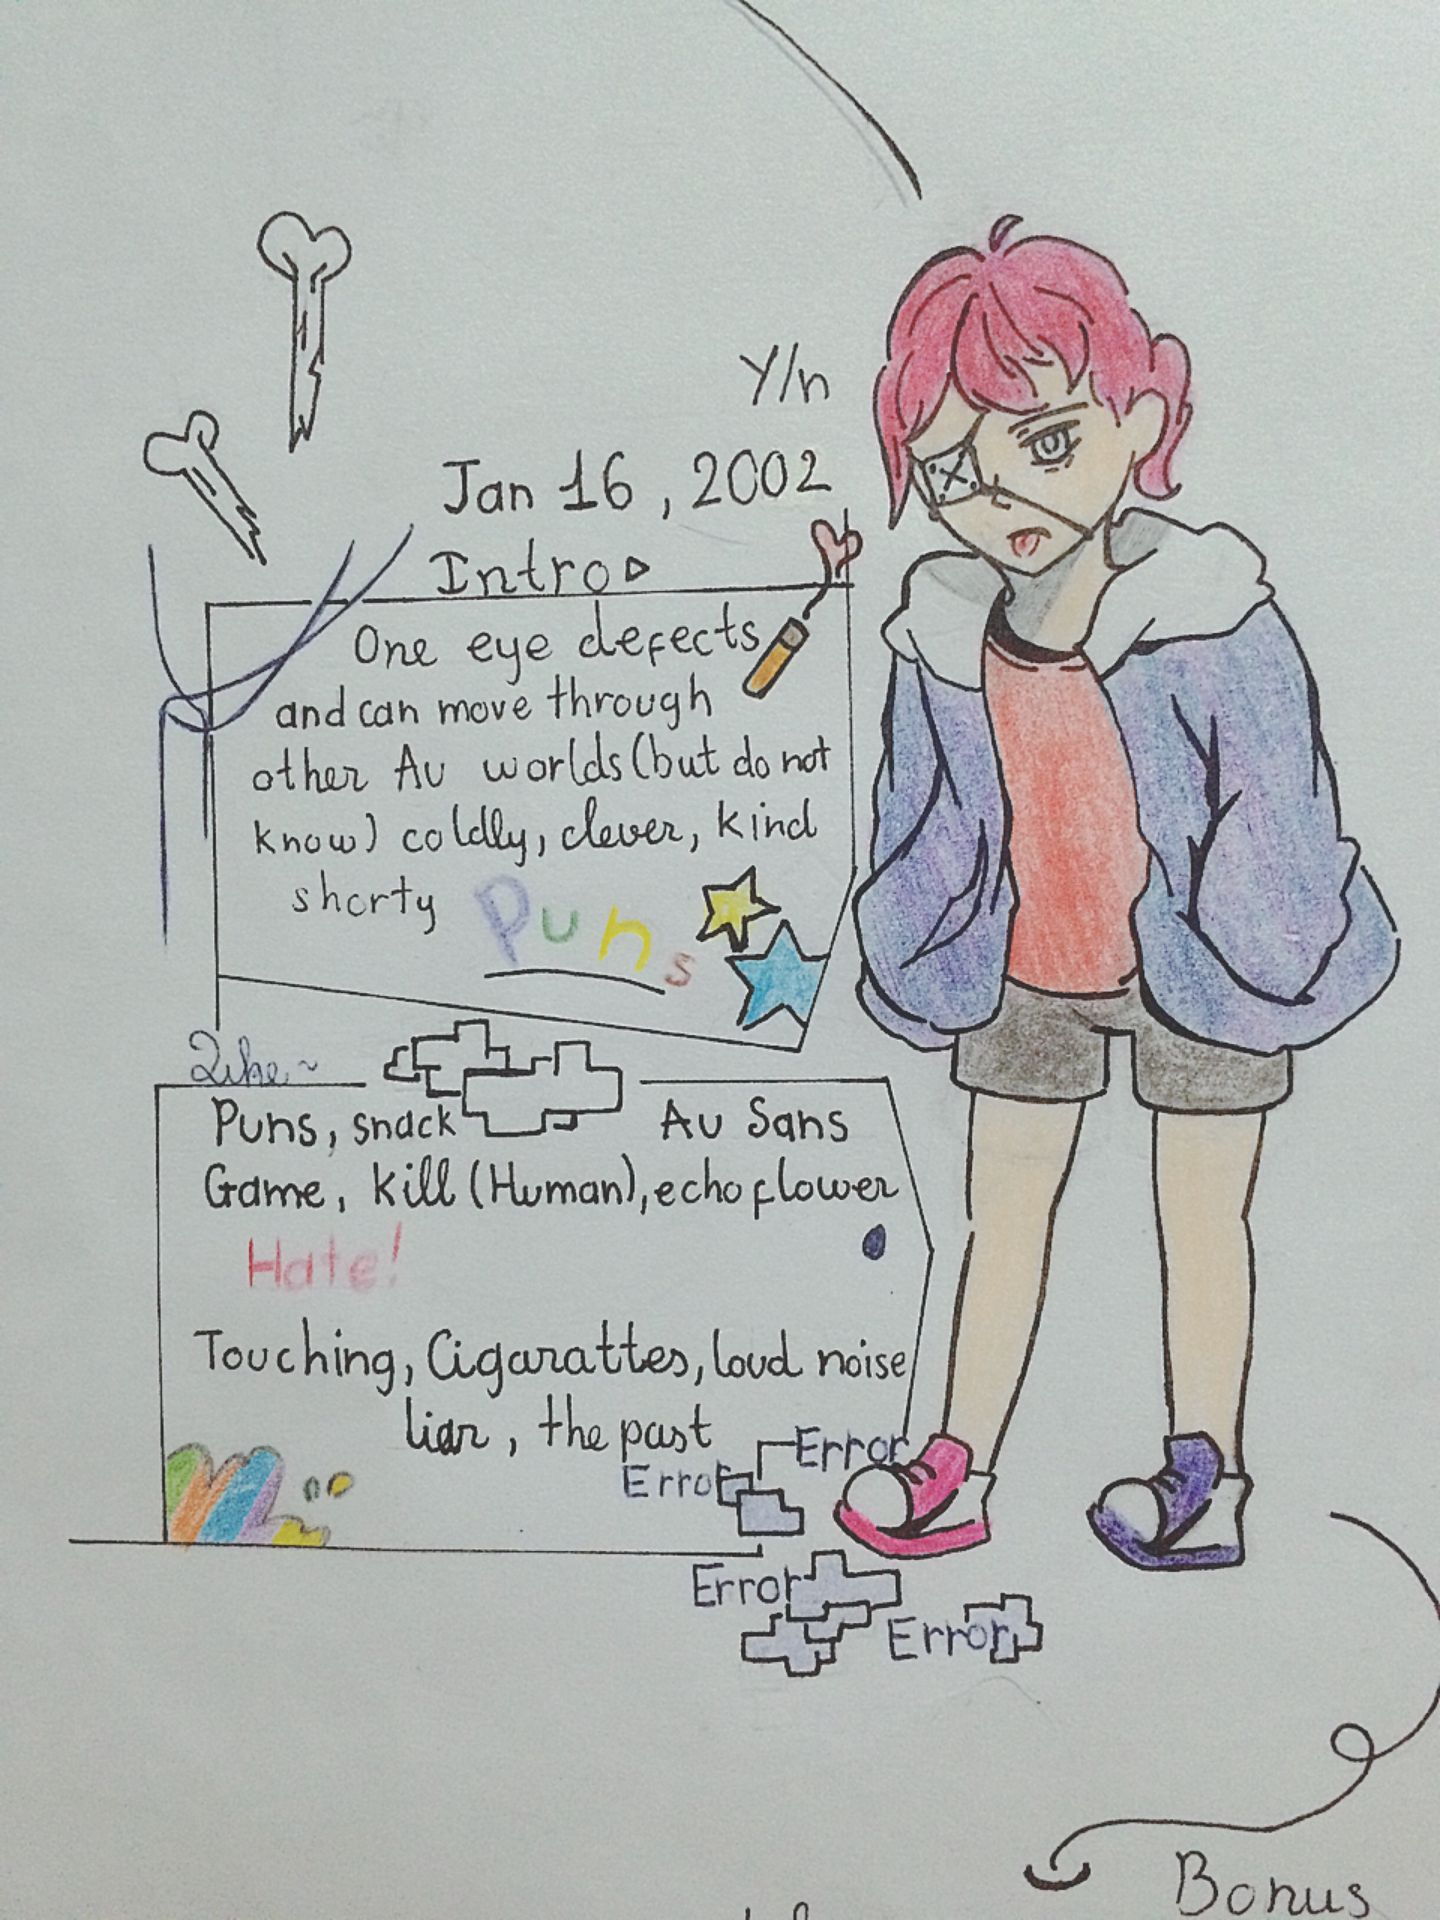 Y/n
Jan 16, 2002
Intro
One eye defects
and can move through
other Au worlds (but do not
know) coldly, clever, kind
shorty Puns
Like~
Puns, snack Au Sans
Game, kill (Human), echo flower
Hate!
Touching, Cigarattes, loud noise
liar, the past
Error
Error
Error
Error
Bonus